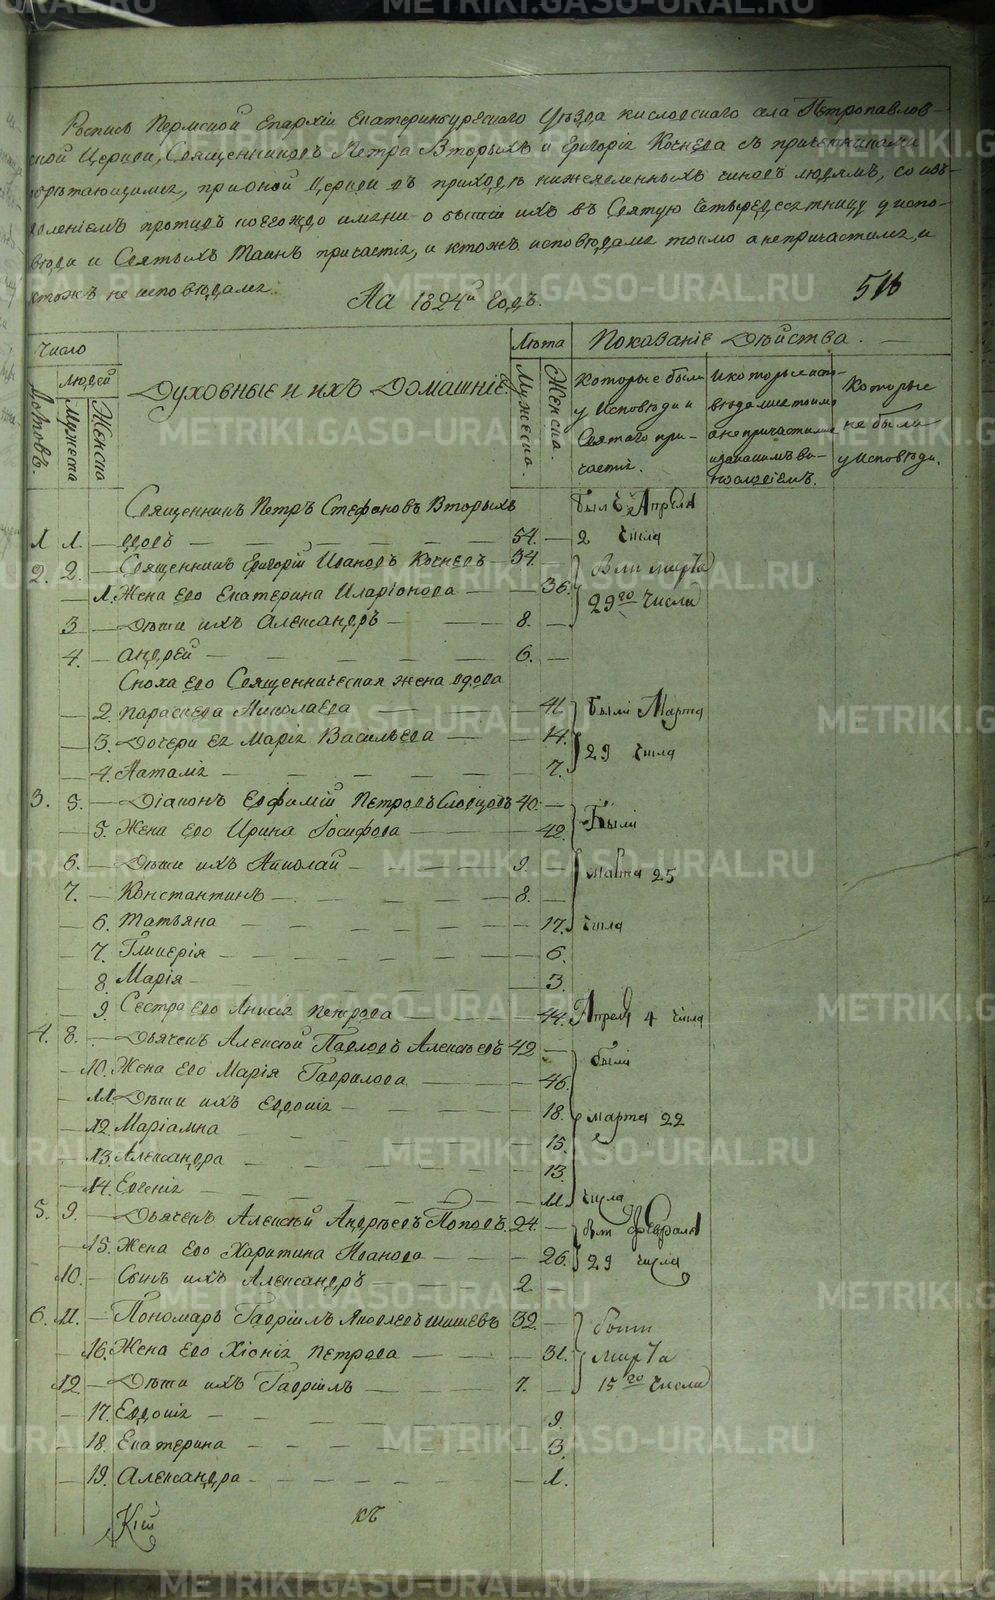 Роспись Пермской Епархіи Екатеринбургского Уезда кисловского села Петропавлов-
ской Церкви, Священниковъ Петра Вторыхъ и Григорія Коснева съ причетниками
обретающимися, при оной Церкви въ приходѣ нижеявленныхъ чиновъ людямъ, со изъ-
явленіемъ противъ коегождо имени о бытіи ихъ въ Святую Четыредесятницу у испо-
веди и Святыхъ Таинъ причастія, и ктожъ исповѣдался токмо а непричастился, и
ктожъ не исповѣдался.
На 1824й Годъ.
516
Число Людей
Дворовъ.
Мужеска
Женска
Духовные и ихъ Домашніе
Лѣта
Мужеска.
Женска.
Показаніе Дѣйства.
Которые были у Исповѣди и Святаго причастія.
И которые исповѣдались токмо а непричастились и
Которые не были у Исповѣди.
Священникъ Петръ Стефановъ Вторыхъ был Апреля
1 1. — вдовъ — 54. — 2 числа
2. 2. — Священникъ Григорій Ивановъ Косневъ — 34. —
1. Жена Его Екатерина Иларіонова — 36. 29го Числа
3 — Дѣти ихъ Александръ — 8. —
4. — Андрей — 6. —
Сноха его Священническая жена вдова
2. Параскева Николаева — 41. были Марта
3. Дочери ея Марія Васильева — 14. 29 числа
4. Наталія — 7.
3. 5. — Діаконъ Евфимій Петровъ Словцовъ 40. —
5. Жена его Ирина Іосифова — 42. Были
6. — Дѣти ихъ Николай — 9. — марта 25
7. — Константинъ — 8. —
6. Татьяна — 17. числа
7. Гликерія — 6.
8. Марія — 3.
9. Сестра его Анисія Петрова — 44. Апреля 4 числа
4. 8. — Дьячекъ Алексѣй Павловъ Алексѣевъ 42 — были
10. Жена его Марія Гаврилова — 46.
11. Дѣти ихъ Евдокія — 18. марта 22
12. Маріамна — 15.
13. Александра — 13
14. Евгенія — 11. числа
5. 9. — Дьячекъ Алексѣй Андрѣевъ Поповъ. 24. — Февраля
15. Жена его Харитина Иванова — 26. 29 числа
10. — Сынъ ихъ Александръ — 2 —
6. 11. — Пономаръ Гавріилъ Яковлевъ Шишевъ 32. —
16. Жена его Хіонія Петрова — 31. Марта
12. — Дѣти ихъ Гавріилъ — 7. — 15го Числа
17. Евдокія — 9.
18. Екатерина — 3.
19. Александра — 1.
METRIKI.GASO-URAL.RU